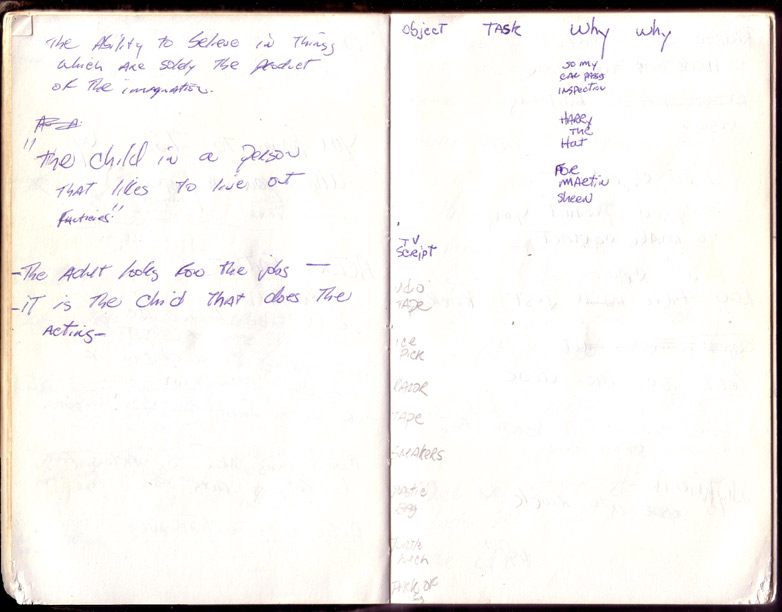 The Ability to believe in Things
which are solely the product
of the imagination.
"The child in a person
that likes to live out
-The Adult looks for the jobs -
-IT is The Child That does The
Acting-
Object Task Why Why
so my
car pass
inspection
HARRy
THE
Hat
For
MARTIN
Sheen
TV
Script
TAPE
ice
Pick
RAZOR
TAPE